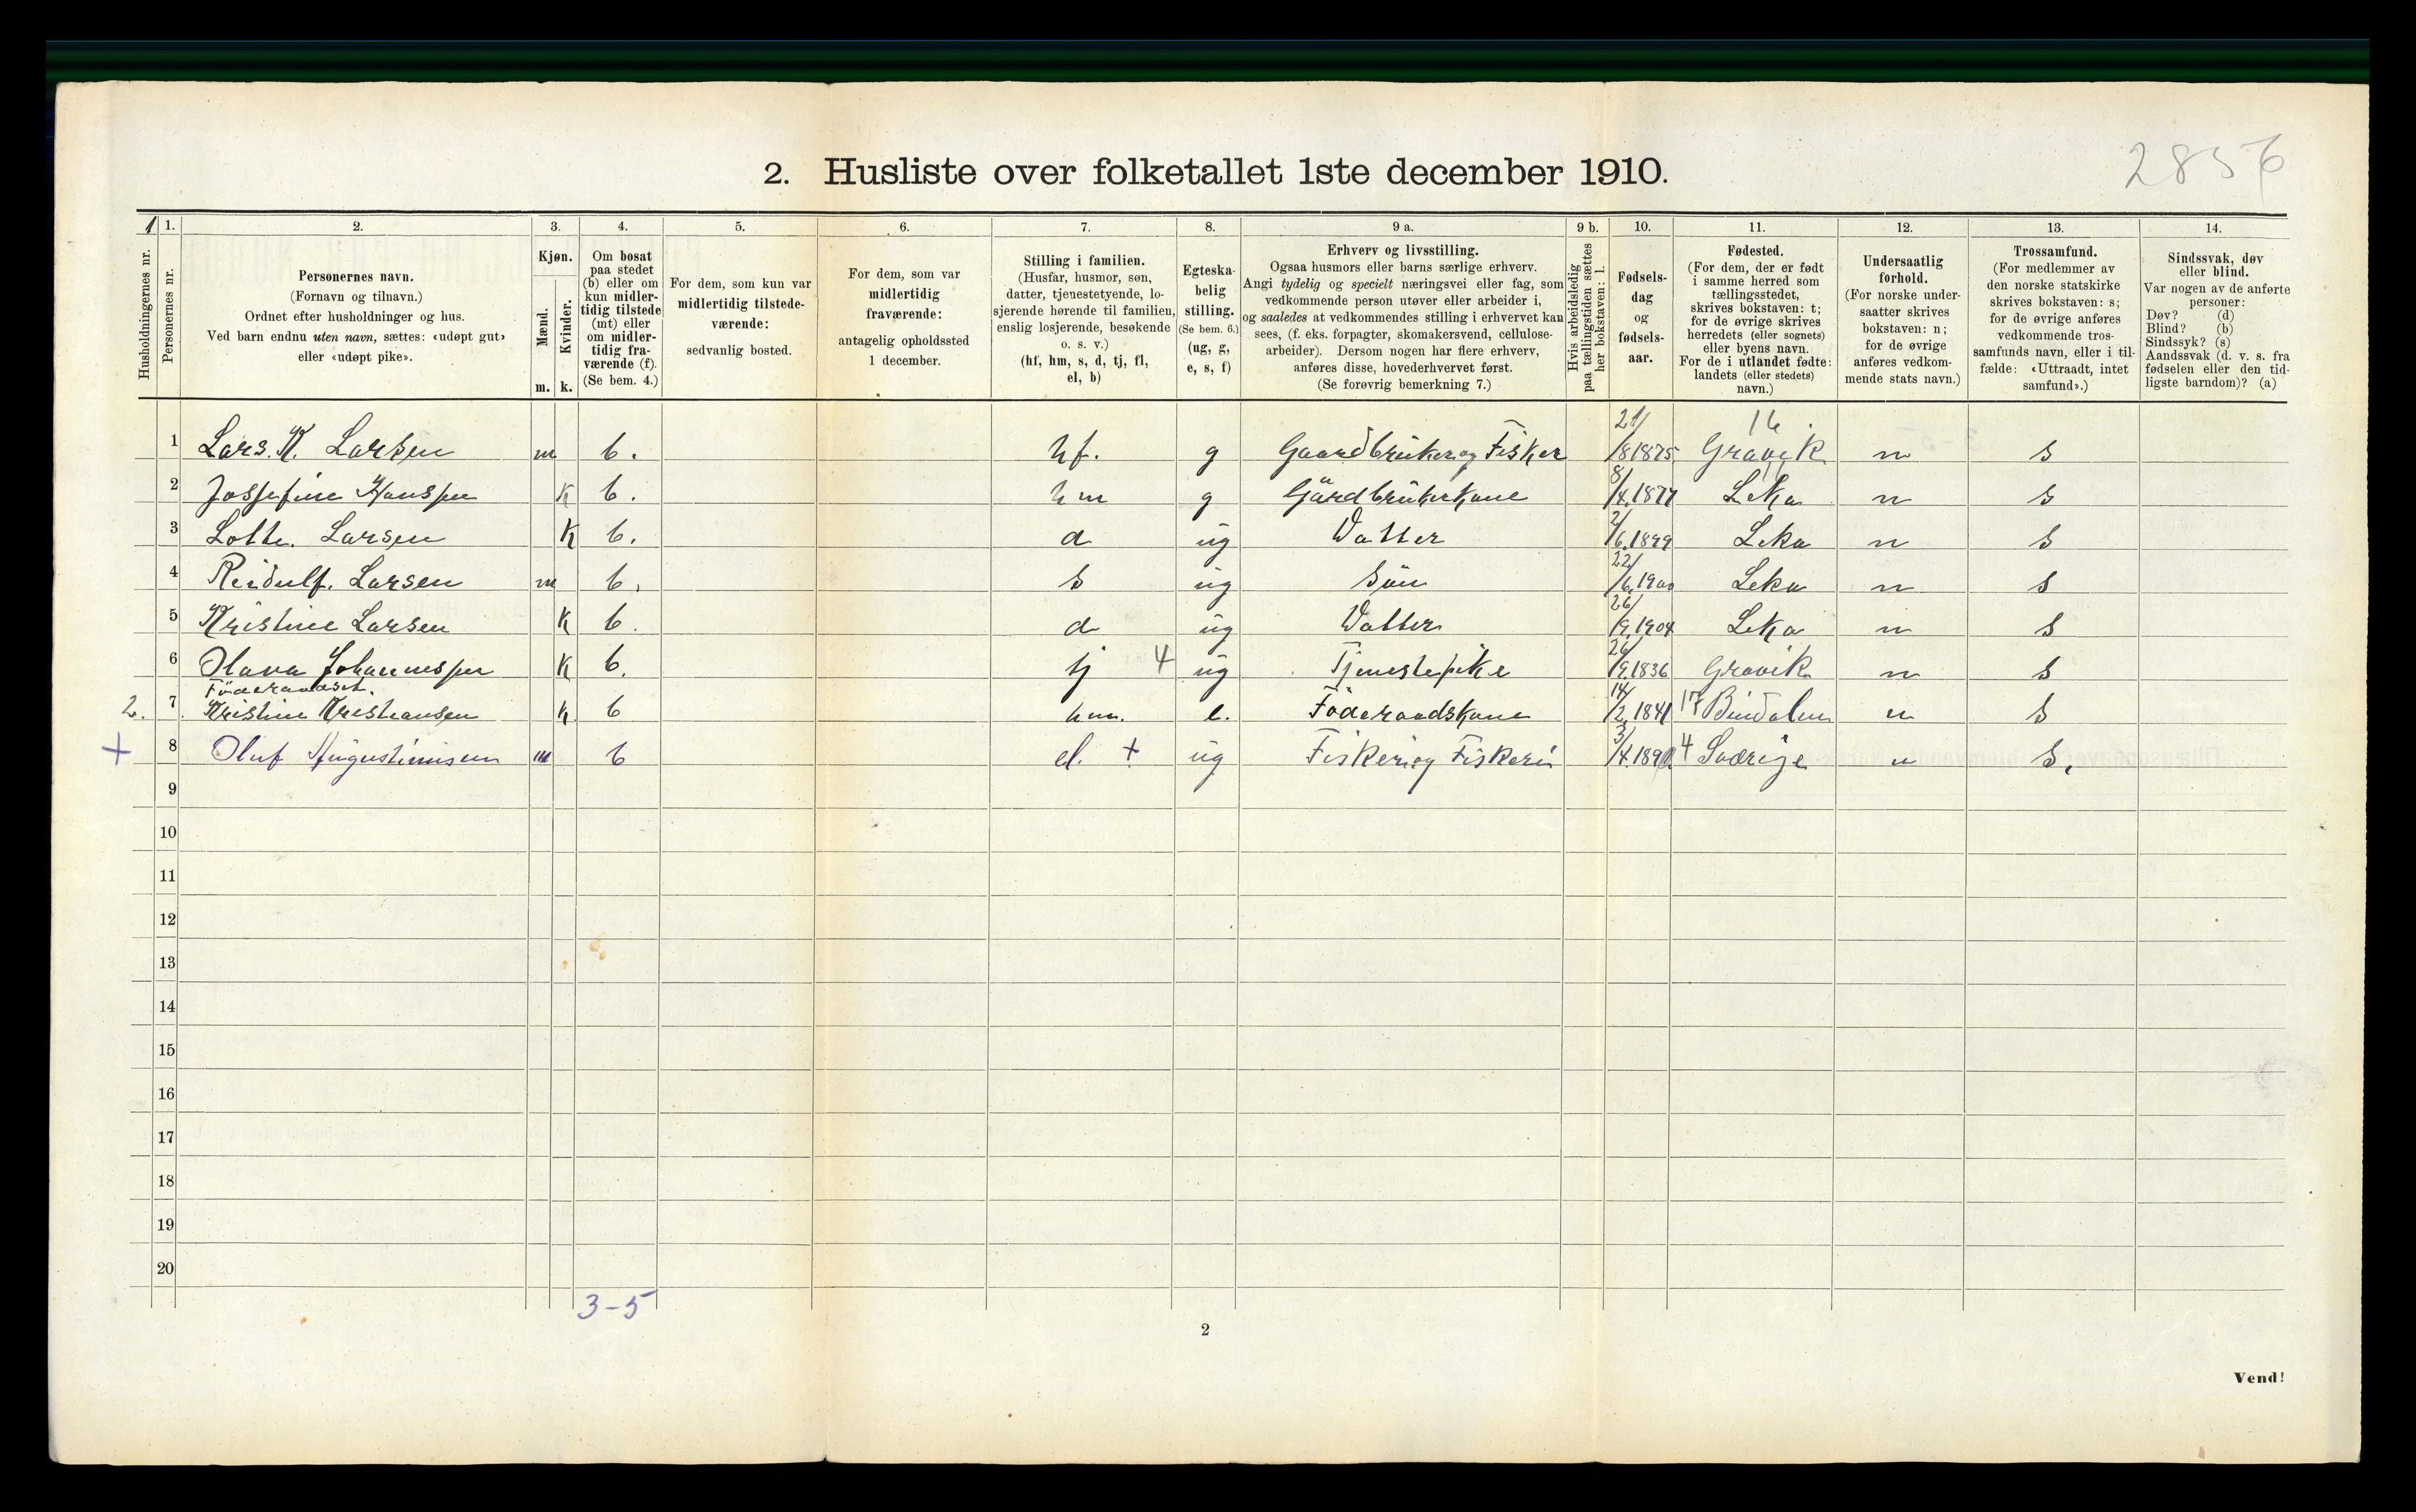 2856
2. Husliste over folketallet 1ste december 1910.
1 1. 2. 3. 4. 5. 6. 7. 8. 9 a. 9 b. 10. 11. 12. 13. 14.
Husholdningernes nr.
Personernes nr.
Personernes navn.
(Fornavn og tilnavn.)
Ordnet efter husholdninger og hus.
Ved barn endnu uten navn, sættes: «udøpt gut»
eller «udøpt pike».
Kjøn.
Mænd.
Kvinder.
m. k.
Om bosat
paa stedet
(b) eller om
kun midler-
tidig tilstede
(mt) eller
om midler-
tidig fra-
værende (f).
(Se bem. 4.)
For dem, som kun var
midlertidig tilstede-
værende:
sedvanlig bosted.
For dem, som var
midlertidig
fraværende:
antagelig opholdssted
1 december.
Stilling i familien.
(Husfar, husmor, søn,
datter, tjenestetyende, lo-
sjerende hørende til familien,
enslig losjerende, besøkende
o. s. v.)
(hf, hm, s, d, tj, fl,
el, b)
Egteska-
belig
stilling.
(Se bem. 6.)
(ug, g,
e, s, f)
Erhverv og livsstilling.
Ogsaa husmors eller barns særlige erhverv.
Angi tydelig og specielt næringsvei eller fag, som
vedkommende person utøver eller arbeider i,
og saaledes at vedkommendes stilling i erhvervet kan
sees, (f. eks. forpagter, skomakersvend, cellulose-
arbeider). Dersom nogen har flere erhverv,
anføres disse, hovederhvervet først.
(Se forøvrig bemerkning 7.)
Hvis arbeidsledig
paa tællingstiden sættes
her bokstaven: l.
Fødsels-
dag
og
fødsels-
aar.
Fødested.
(For dem, der er født
i samme herred som
tællingsstedet,
skrives bokstaven: t;
for de øvrige skrives
herredets (eller sognets)
eller byens navn.
For de i utlandet fødte:
landets (eller stedets)
navn.)
Undersaatlig
forhold.
(For norske under-
saatter skrives
bokstaven: n;
for de øvrige
anføres vedkom-
mende stats navn.)
Trossamfund.
(For medlemmer av
den norske statskirke
skrives bokstaven: s;
for de øvrige anføres
vedkommende tros-
samfunds navn, eller i til-
fælde: «Uttraadt, intet
samfund».)
Sindssvak, døv
eller blind.
Var nogen av de anførte
personer:
Døv? (d)
Blind? (b)
Sindssyk? (s)
Aandssvak (d. v. s. fra
fødselen eller den tid-
ligste barndom)? (a)
1 Lars. K. Larsen m b. hf. g Gaardbruker og Fisker 21/8 1875 16 Gravik n s
2 Jossefine Hanssen K b. hm g Gårdbrukerkone 8/4 1877 Leka n s
3 Lotte. Larsen K b. d ug Datter 2/6.1899 Leka n s
4 Reidulf. Larsen m b. s ug Sön 22/6.1900 Leka n s
5 Kristine Larsen K b. d ug Datter 26/9.1904 Leka n s
6 Olava Johannessen K b. tj 4 ug Tjenestepike 26/9.1836 Gravik n s
Föderaadset.
2. 7 Kristine Kristiansen k b hm. e. Föderaadskone 14/2.1841 17 Bindalen n s
+ 8 Oluf Augustinusen m b el. + ug Fisker og Fiskeri 3/4.189 4 Sværige n s.
9
10
11
12
13
14
15
16
17
18
19
20
3-5
2
Vend!